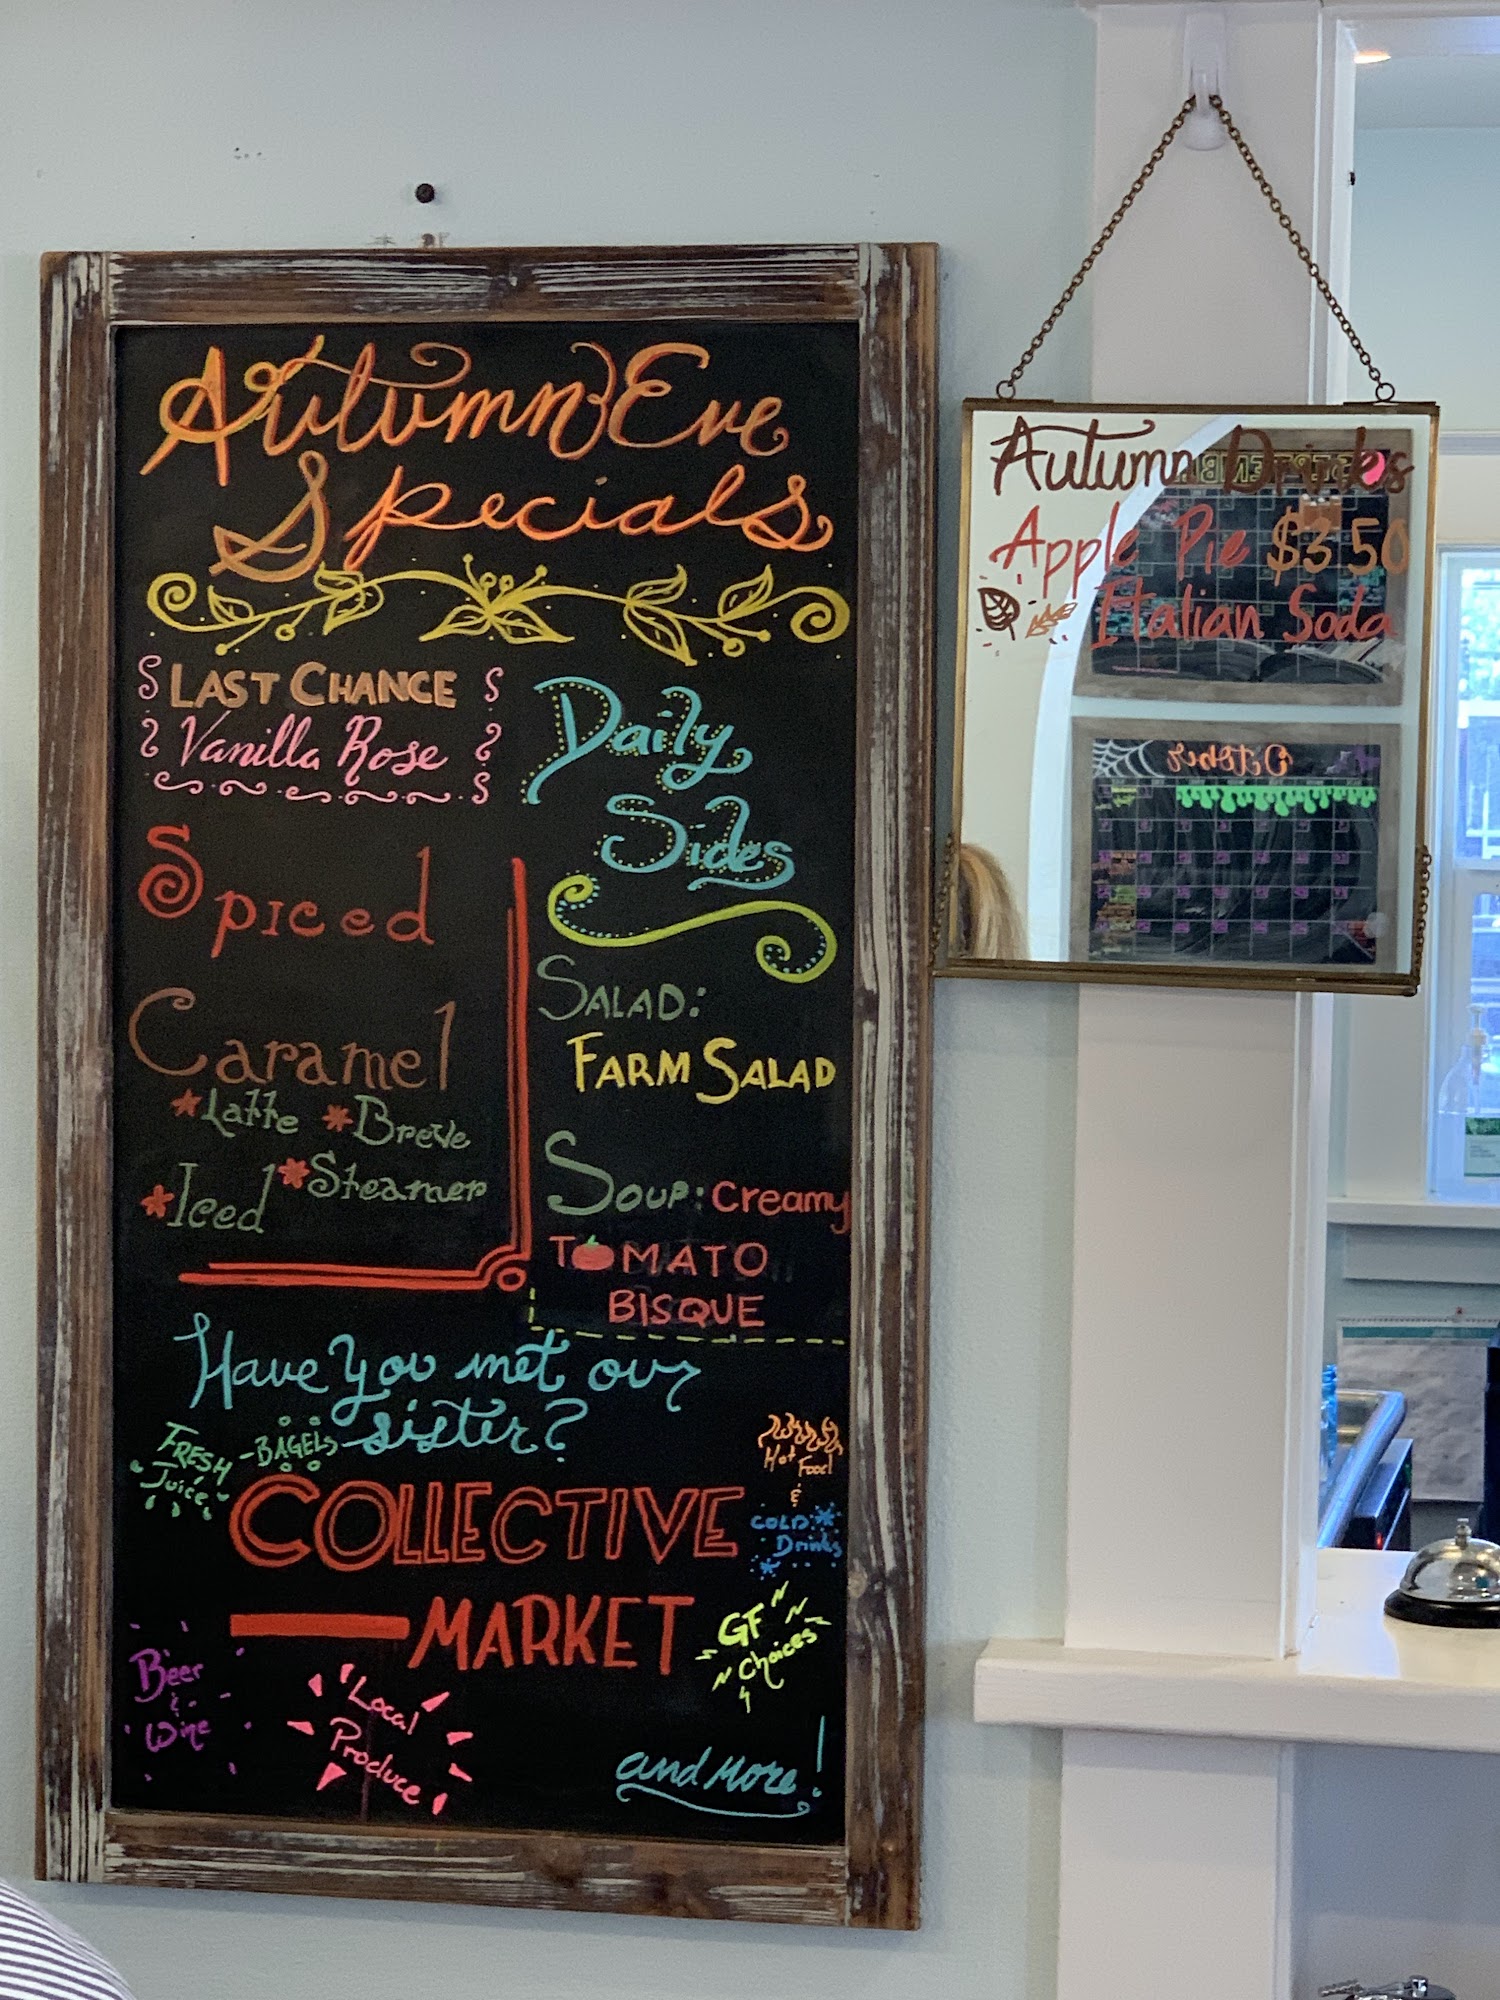 Autumn Eve
Specials
LAST CHANCE
Vanilla Rose
Spiced
Caramel
*Latte *Breve
*Iced *Steamer
Daily
Sides
SALAD:
FARM SALAD
SOUP: Creamy
TOMATO
BISQUE
Have You met our
sister?
FRESH
Juice
-BAGELS
COLLECTIVE
MARKET
Hot Food
&
COLD
Drinks
GF
Choices
Beer
&
Wine
Local
Produce
and more!
Autumn Drinks
Apple Pie $3.50
Italian Soda
October